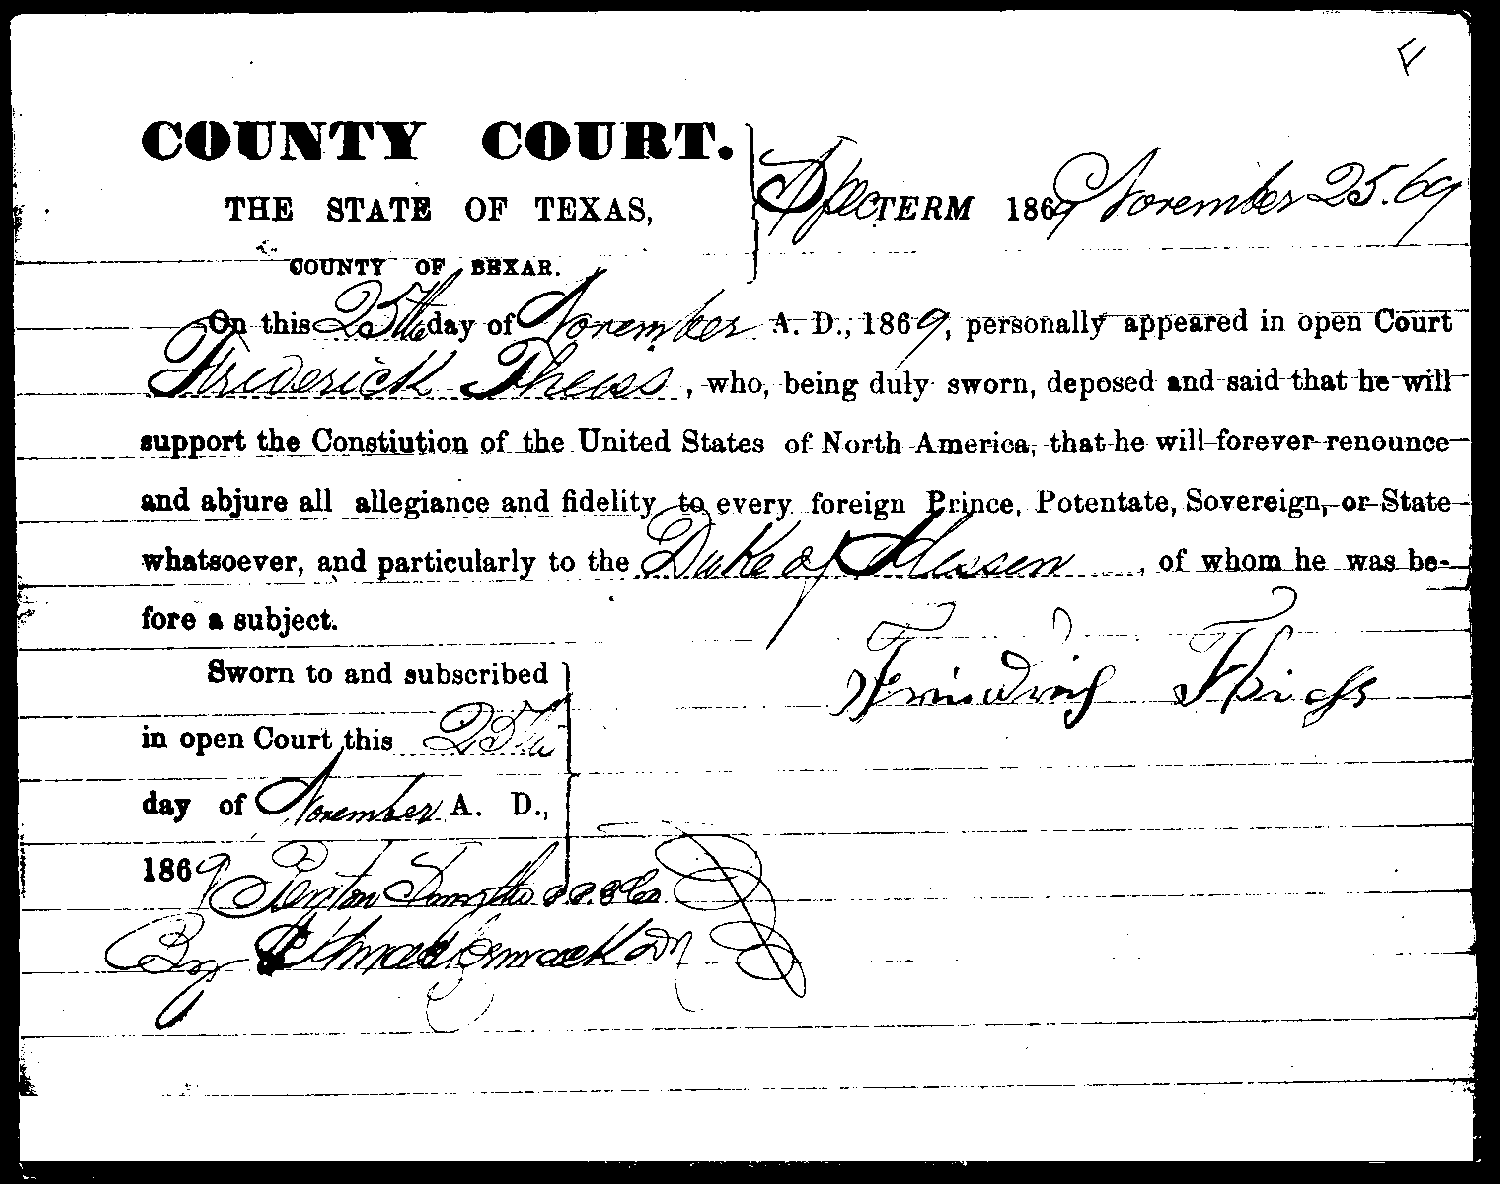 F
COUNTY COURT.
THE STATE OF TEXAS,
COUNTY OF BEXAR.
Spec TERM 1869 November 25.69
On this 25th day of November A. D., 1869, personally appeared in open Court
Frederick Theiss, who, being duly sworn, deposed and said that he will
support the Constiution of the United States of North America, that he will forever renounce
and abjure all allegiance and fidelity to every foreign Prince, Potentate, Sovereign, or State
whatsoever, and particularly to the Duke of Hessen, of whom he was be-
fore a subject.
Friedrich Theiss
Sworn to and subscribed
in open Court this 25th
day of November A. D.,
1869
By